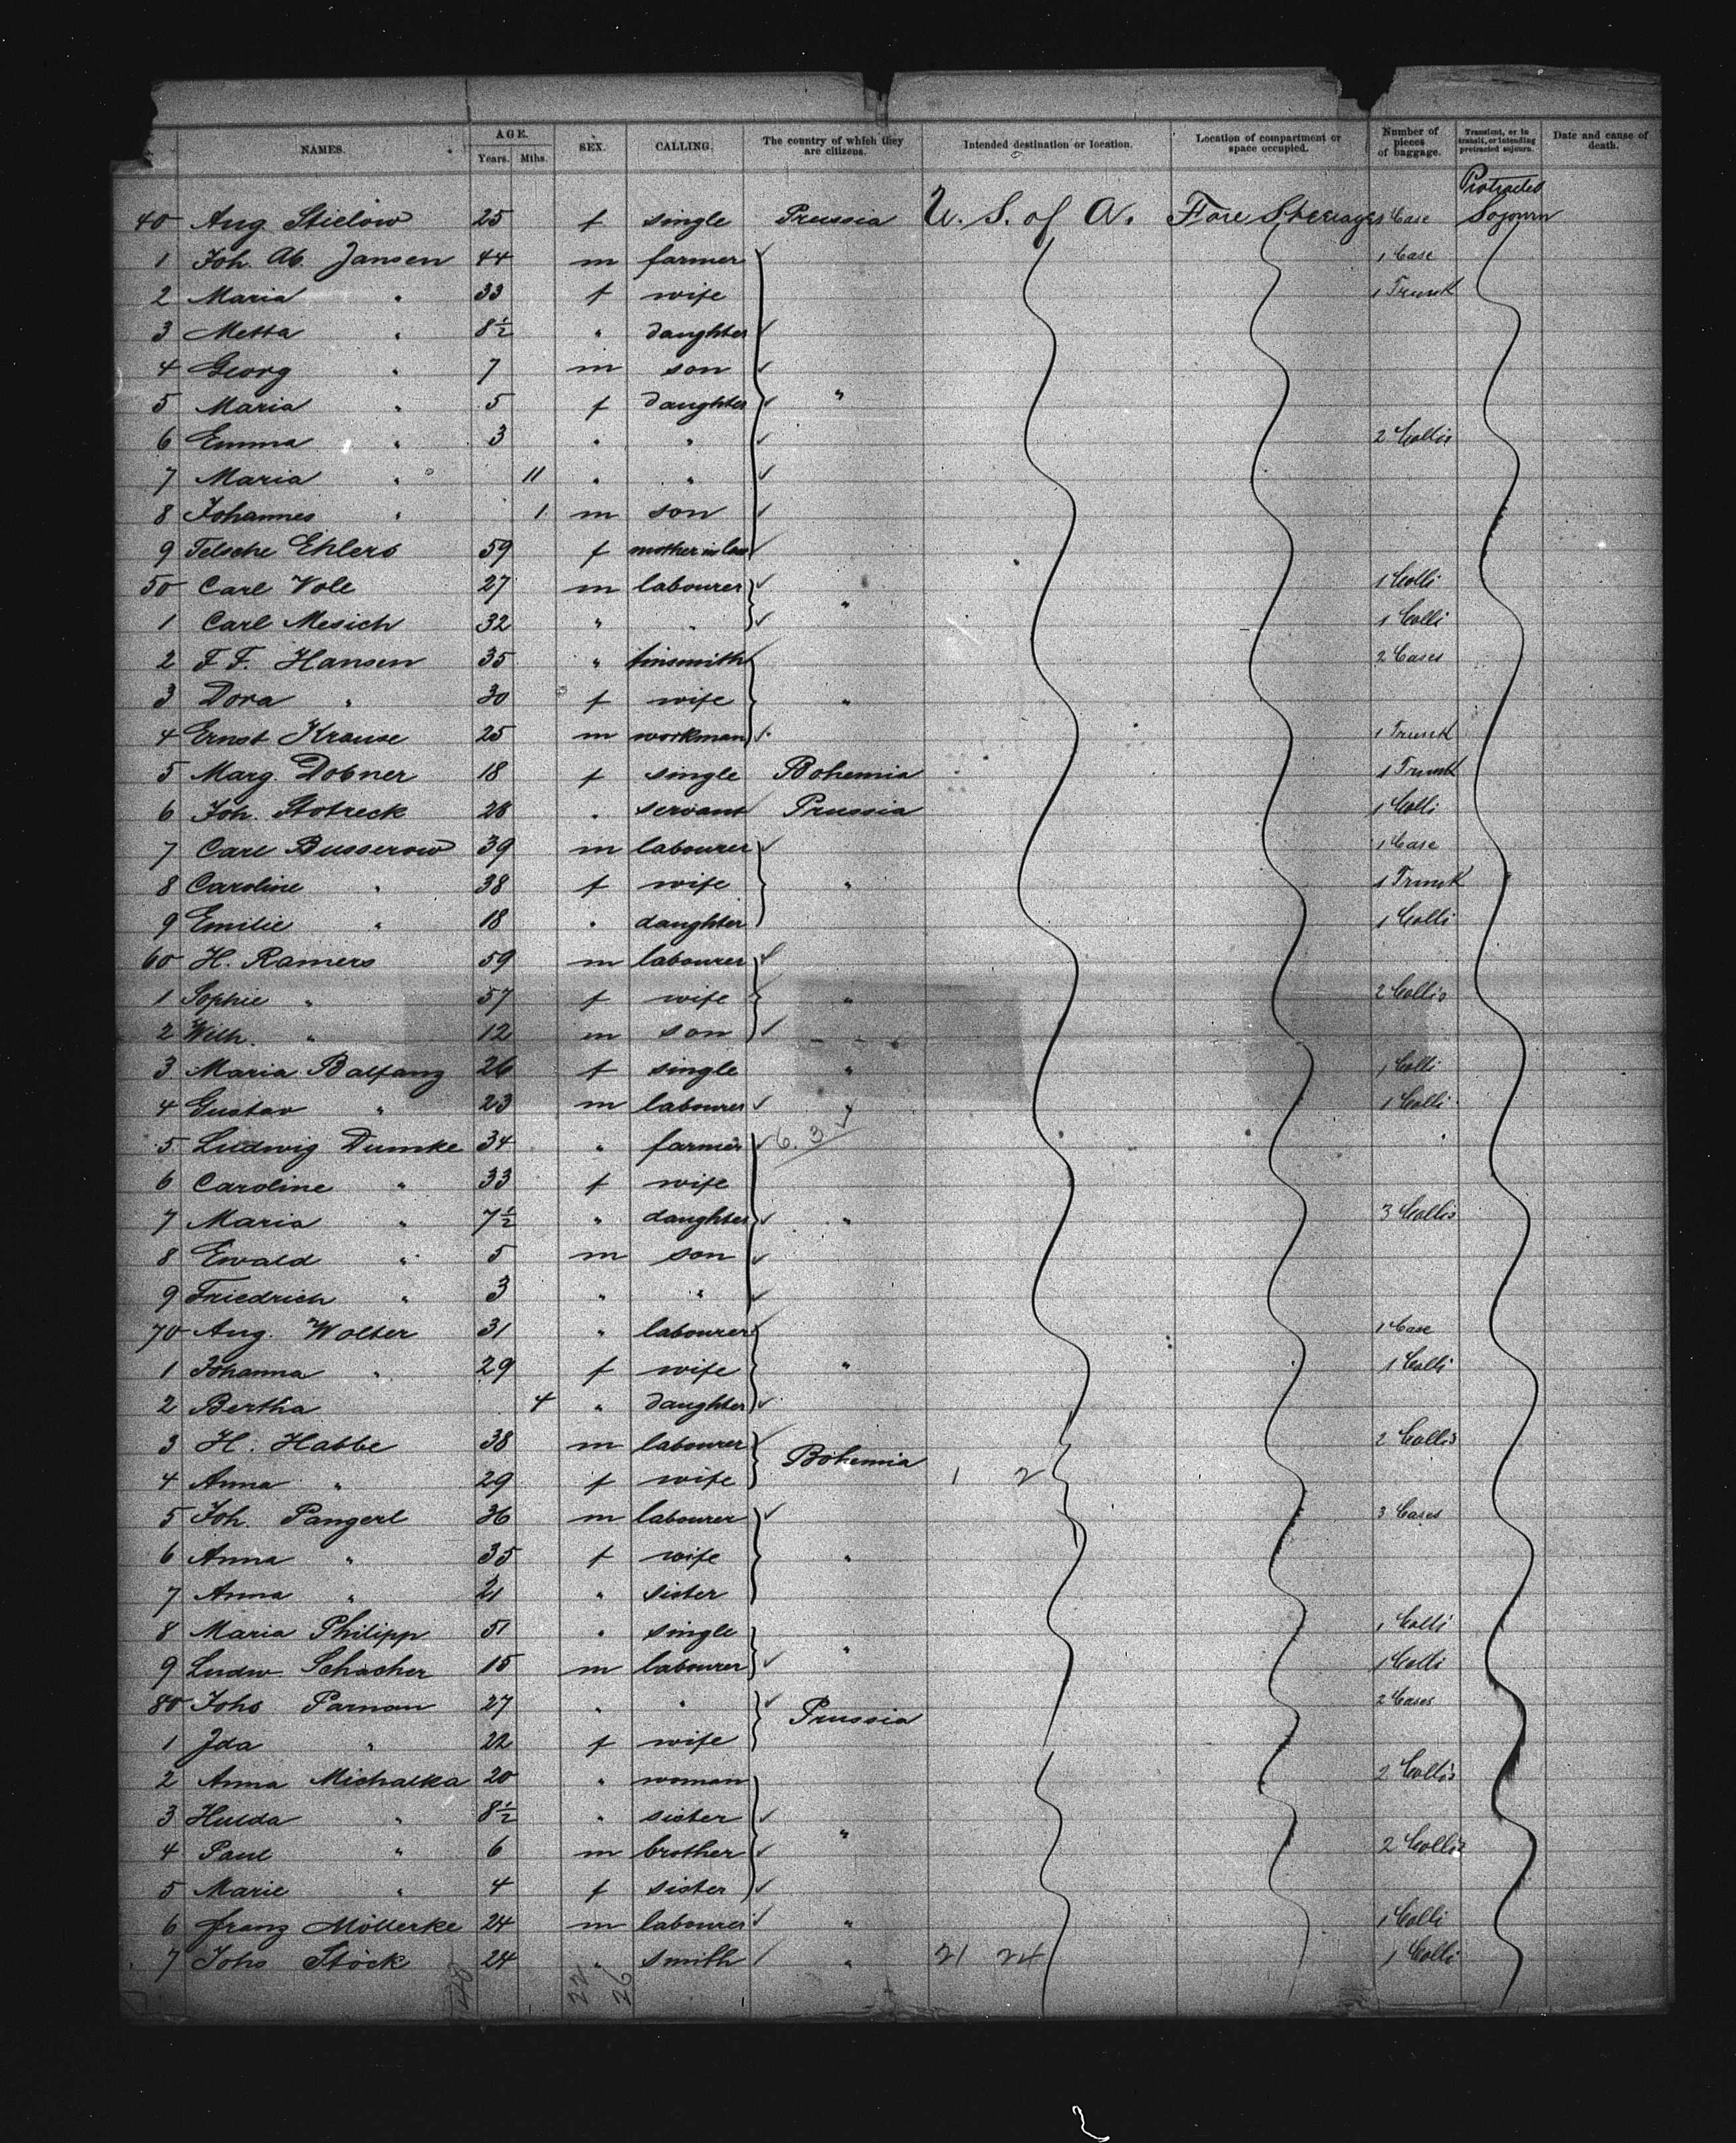 NAMES. AGE. Years. Mths. SEX. CALLING. The country of which they are citizens. Intended destination or location. Location of compartment or space occupied. Number of pieces of baggage. Transient, or in transit, or intending protracted sojourn. Date and cause of death.
40 Aug. Stielow 25 f single Prussia U. S. of A. Fore Steerage 1 Case Protracted Sojourn
1 Joh. Ab. Jansen 44 m farmer 1 Case
2 Maria " 33 f wife 1 Trunk
3 Metta " 8½ " daughter
4 Georg " 7 m son
5 Maria " 5 f daughter "
6 Emma " 3 " " 2 Collis
7 Maria " 11 " "
8 Johannes " 1 m son
9 Telsche Ehlers 59 f mother in law
50 Carl Vole 27 m labourer " 1 Colli
1 Carl Mesich 32 " " 1 Colli
2 F. F. Hansen 35 " tinsmith 2 Cases
3 Dora " 30 f wife "
4 Ernst Krause 25 m workman 1 Trunk
5 Marg. Dobner 18 f single Bohemia 1 Trunk
6 Joh. Stobreck 28 " servant Prussia 1 Colli
7 Carl Busserow 39 m labourer 1 Case
8 Caroline " 38 f wife " 1 Trunk
9 Emilie " 18 " daughter 1 Colli
60 H. Ramers 59 m labourer
1 Sophie " 57 f wife " 2 Collis
2 Wilh. " 12 m son
3 Maria Balfanz 26 f single " 1 Colli
4 Gustav " 23 m labourer " 1 Colli
5 Ludwig Dumke 34 " farmer 6. 3
6 Caroline " 33 f wife
7 Maria " 7½ " daughter " 3 Collis
8 Ewald " 5 m son
9 Friedrich " 3 " "
70 Aug. Wolter 31 " labourer 1 Case
1 Johanna " 29 f wife " 1 Colli
2 Bertha 4 " daughter
3 H. Habbe 38 m labourer Bohemia 2 Collis
4 Anna " 29 f wife 1 2
5 Joh. Pangerl 36 m labourer 3 Cases
6 Anna " 35 f wife "
7 Anna " 21 " sister
8 Maria Philipp 51 " single " 1 Colli
9 Ludw. Schacher 15 m labourer 1 Colli
80 Johs Parnow 27 " " Prussia 2 Cases
1 Ida " 22 f wife
2 Anna Michalka 20 " woman 2 Collis
3 Hulda " 8½ " sister
4 Paul " 6 m brother " 2 Collis
5 Marie " 4 f sister
6 Franz Möllerke 24 m labourer " 1 Colli
7 Johs Stöck 24 " smith " 21 24 1 Colli
22 26
2